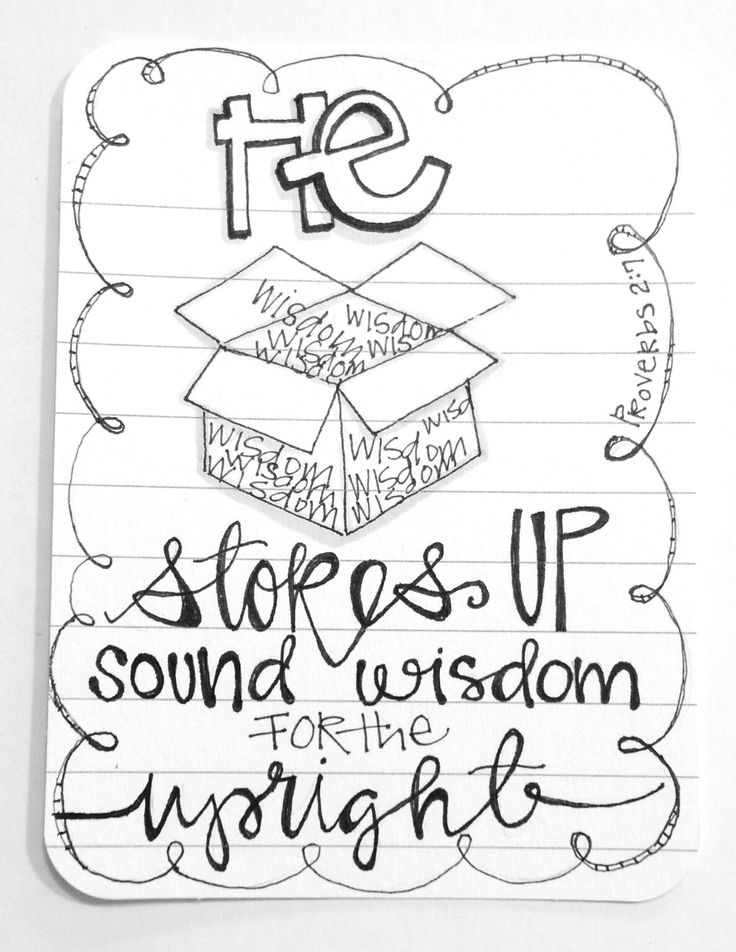 He
wisdom wisdom
wisdom wis
wisdom
wisdom wisd
wisdom wisdom
wisdom wisdom
wisdom wisdom
Proverbs 2:7
stores UP
sound wisdom
FOR the
upright